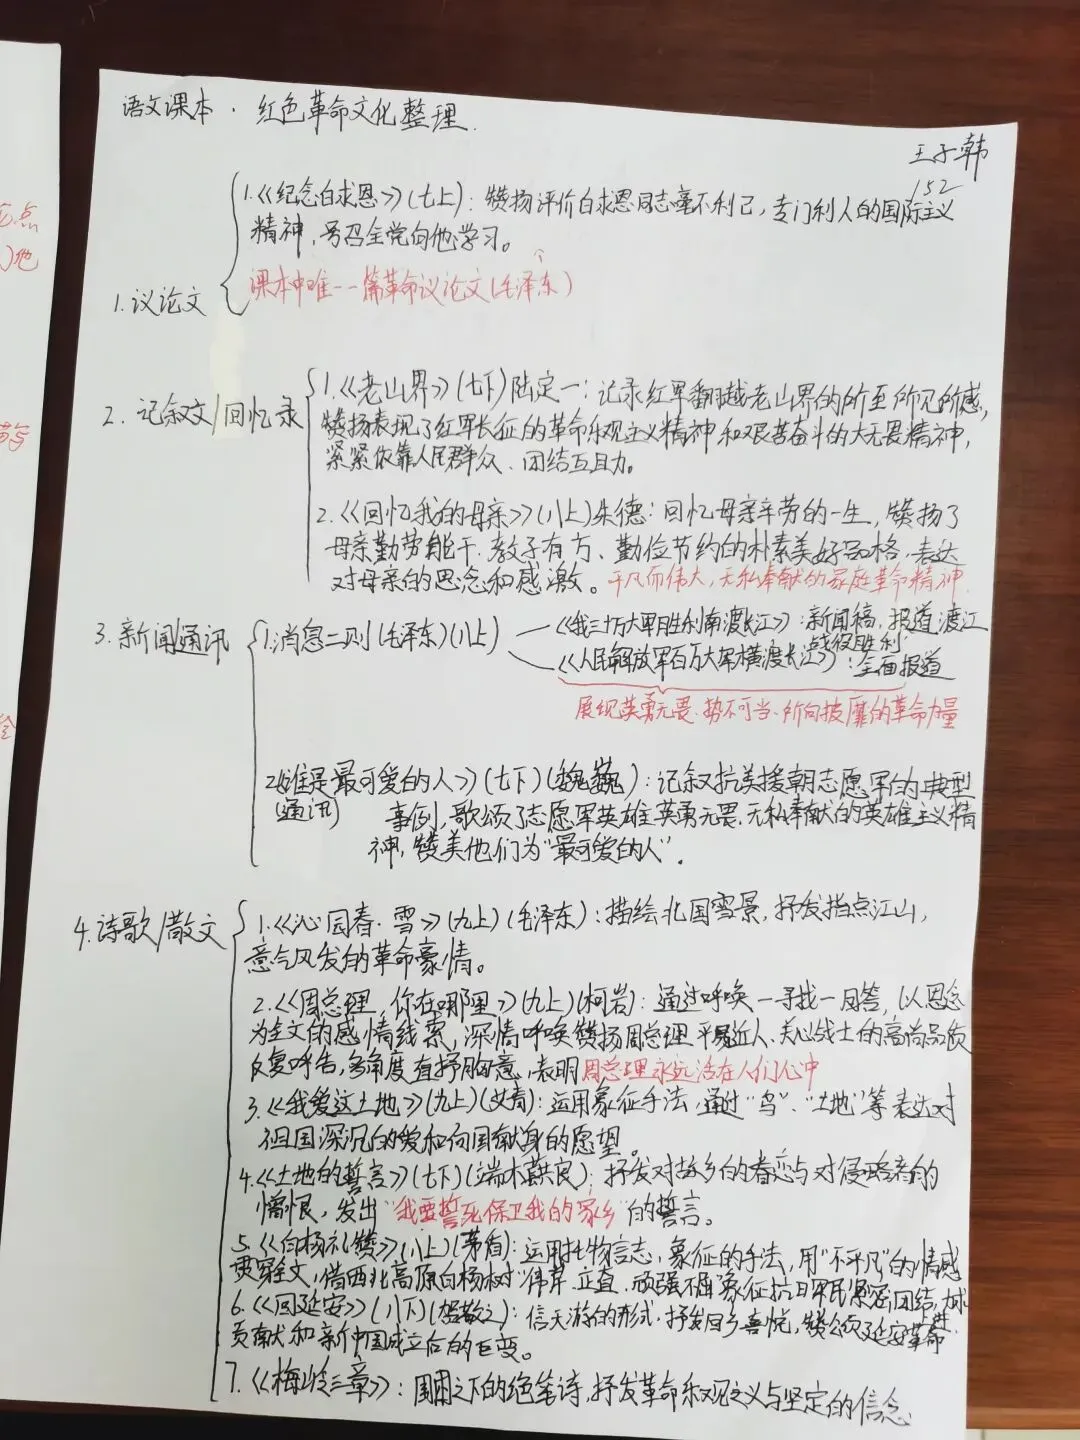 语文课本·红色革命文化整理.
王子韩
152
点
)他
1.议论文
1.《纪念白求恩》(七上)：赞扬评价白求恩同志毫不利己，专门利人的国际主义
精神，号召全党向他学习。
课本中唯一一篇革命议论文(毛泽东)
2.记叙文/回忆录
1.《老山界》(七下)陆定一：记录红军翻越老山界的所至所见所感，
赞扬表现了红军长征的革命乐观主义精神和艰苦奋斗的大无畏精神，
紧紧依靠人民群众、团结互助。
2.《回忆我的母亲》(八上)朱德：回忆母亲辛劳的一生，赞扬了
母亲勤劳能干、教子有方、勤俭节约的朴素美好品格，表达
对母亲的思念和感激。平凡而伟大，无私奉献的家庭革命精神
3.新闻/通讯
1.消息二则(毛泽东)(八上)
《我三十万大军胜利南渡长江》：新闻稿，报道渡江
战役胜利
《人民解放军百万大军横渡长江》：全面报道
展现英勇无畏、势不可当、所向披靡的革命力量
2.《谁是最可爱的人》(七下)(魏巍)：记叙抗美援朝志愿军的典型
(通讯)
事例，歌颂了志愿军英雄英勇无畏，无私奉献的英雄主义精
神，赞美他们为“最可爱的人”.
4.诗歌/散文
1.《沁园春·雪》(九上)(毛泽东)：描绘北国雪景，抒发指点江山，
意气风发的革命豪情。
2.《周总理，你在哪里》(九上)(柯岩)：通过呼唤—寻找—回答，以思念
为全文的感情线索，深情呼唤赞扬周总理平易近人、关心战士的高尚品质
反复呼告，多角度直抒胸意，表明周总理永远活在人们心中
3.《我爱这土地》(九上)(艾青)：运用象征手法，通过“鸟”、“土地”等表达对
祖国深沉的爱和向国献身的愿望。
4.《土地的誓言》(七下)(端木蕻良)：抒发对故乡的眷恋与对侵略者的
憎恨，发出“我要誓死保卫我的家乡”的誓言。
5.《白杨礼赞》(八上)(茅盾)：运用托物言志，象征的手法，用“不平凡”的情感
贯穿全文，借西北高原白杨树“伟岸、正直、顽强不屈”象征抗日军民紧密团结，力求
上进
6.《回延安》(八下)(贺敬之)：信天游的形式，抒发回乡喜悦，赞颂延安革命
贡献和新中国成立后的巨变。
7.《梅岭三章》：围困之下的绝笔诗，抒发革命乐观主义与坚定的信念